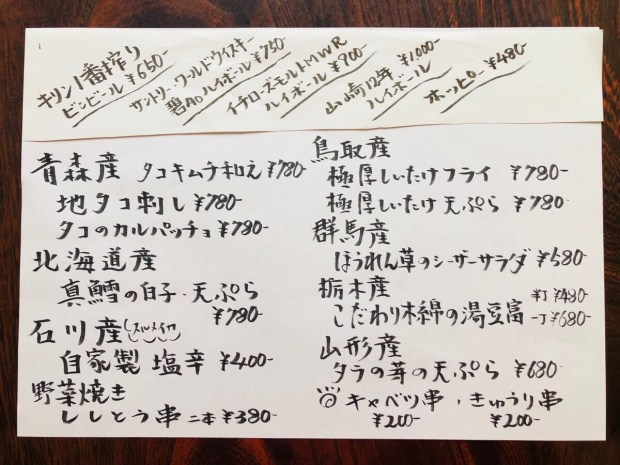 キリン一番搾り
ビンビール ¥650-
サントリーワールドウイスキー
碧Aoハイボール ¥750
イチローズモルトMWR
ハイボール ¥900
山崎12年 ¥1,000-
ハイボール
ホッピー ¥480-
青森産 タコキムチ和え ¥780-
地タコ刺し ¥780-
タコのカルパッチョ ¥780-
北海道産
真鱈の白子・天ぷら
¥780-
石川産(スルメイカ)
自家製 塩辛 ¥400-
野菜焼き
ししとう串 二本 ¥380-
鳥取産
極厚しいたけフライ ¥780-
極厚しいたけ天ぷら ¥780-
群馬産
ほうれん草のシーザーサラダ ¥580-
栃木産 半丁 ¥480-
こだわり木綿の湯豆富 一丁 ¥680-
山形産
タラの芽の天ぷら ¥680-
キャベツ串・きゅうり串
¥200- ¥200-